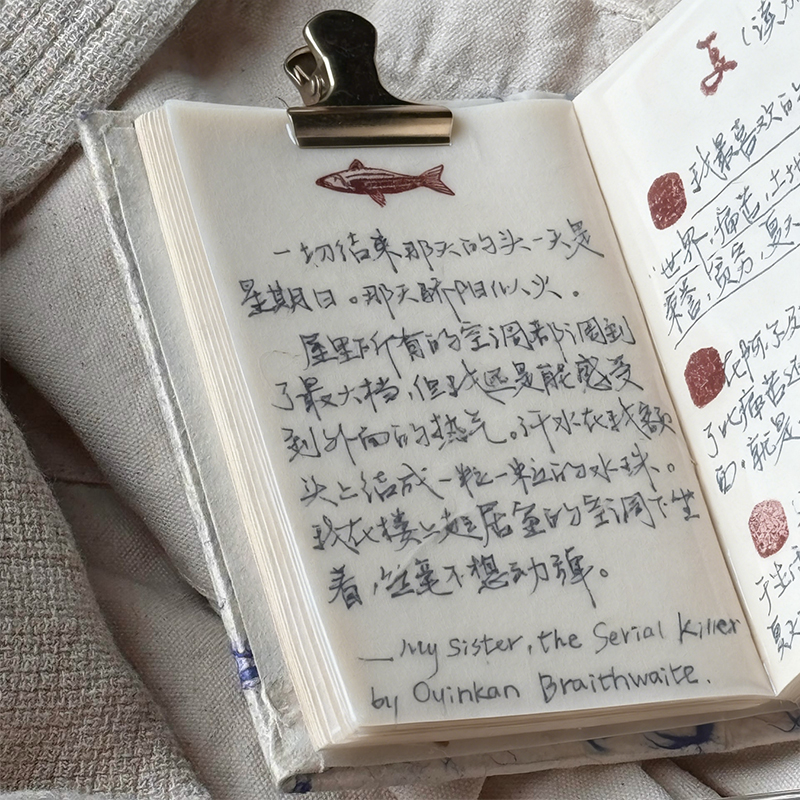 一切结束那天的头一天是
星期日。那天骄阳似火。
屋里所有的空调都调到
了最大档,但我还是能感受
到外面的热气。汗水在我额
头上结成一粒一粒的水珠。
我在楼上起居室的空调下坐
着,丝毫不想动弹。
—My sister, the Serial Killer
by Oyinkan Braithwaite.
夏(读
我最喜欢的
世界,痛苦,土地
贫穷,夏天
了比痛苦还
面,就是
于生
夏天